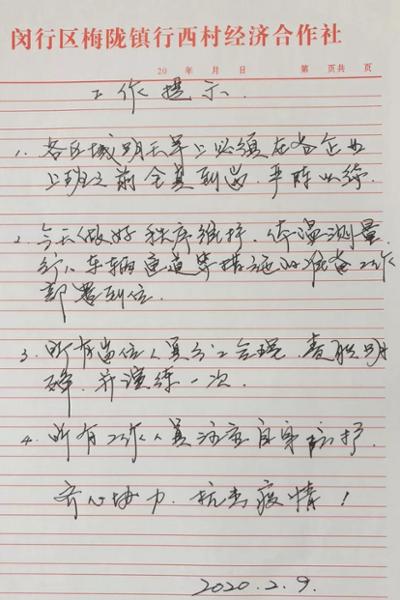 闵行区梅陇镇行西村经济合作社
20 年 月 日 第 页共 页
工作提示
1、各区域明天早上必须在各企业
上班之前全员到岗,严阵以待.
2、今天做好秩序维护、体温测量、
行人车辆通道等措施的准备工作
部署到位.
3、所有岗位人员分工合理、责职明
确,并演练一次.
4、所有工作人员注意自身防护.
齐心协力、抗击疫情!
2020.2.9.